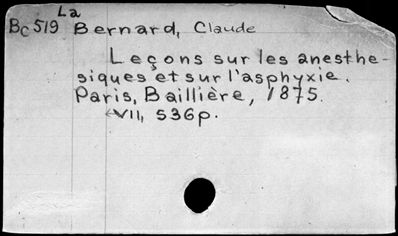 La
Bc 519 Bernard, Claude
Leçons sur les anesthe-
siques et sur l'asphyxie.
Paris, Baillière, 1875.
VII, 536p.